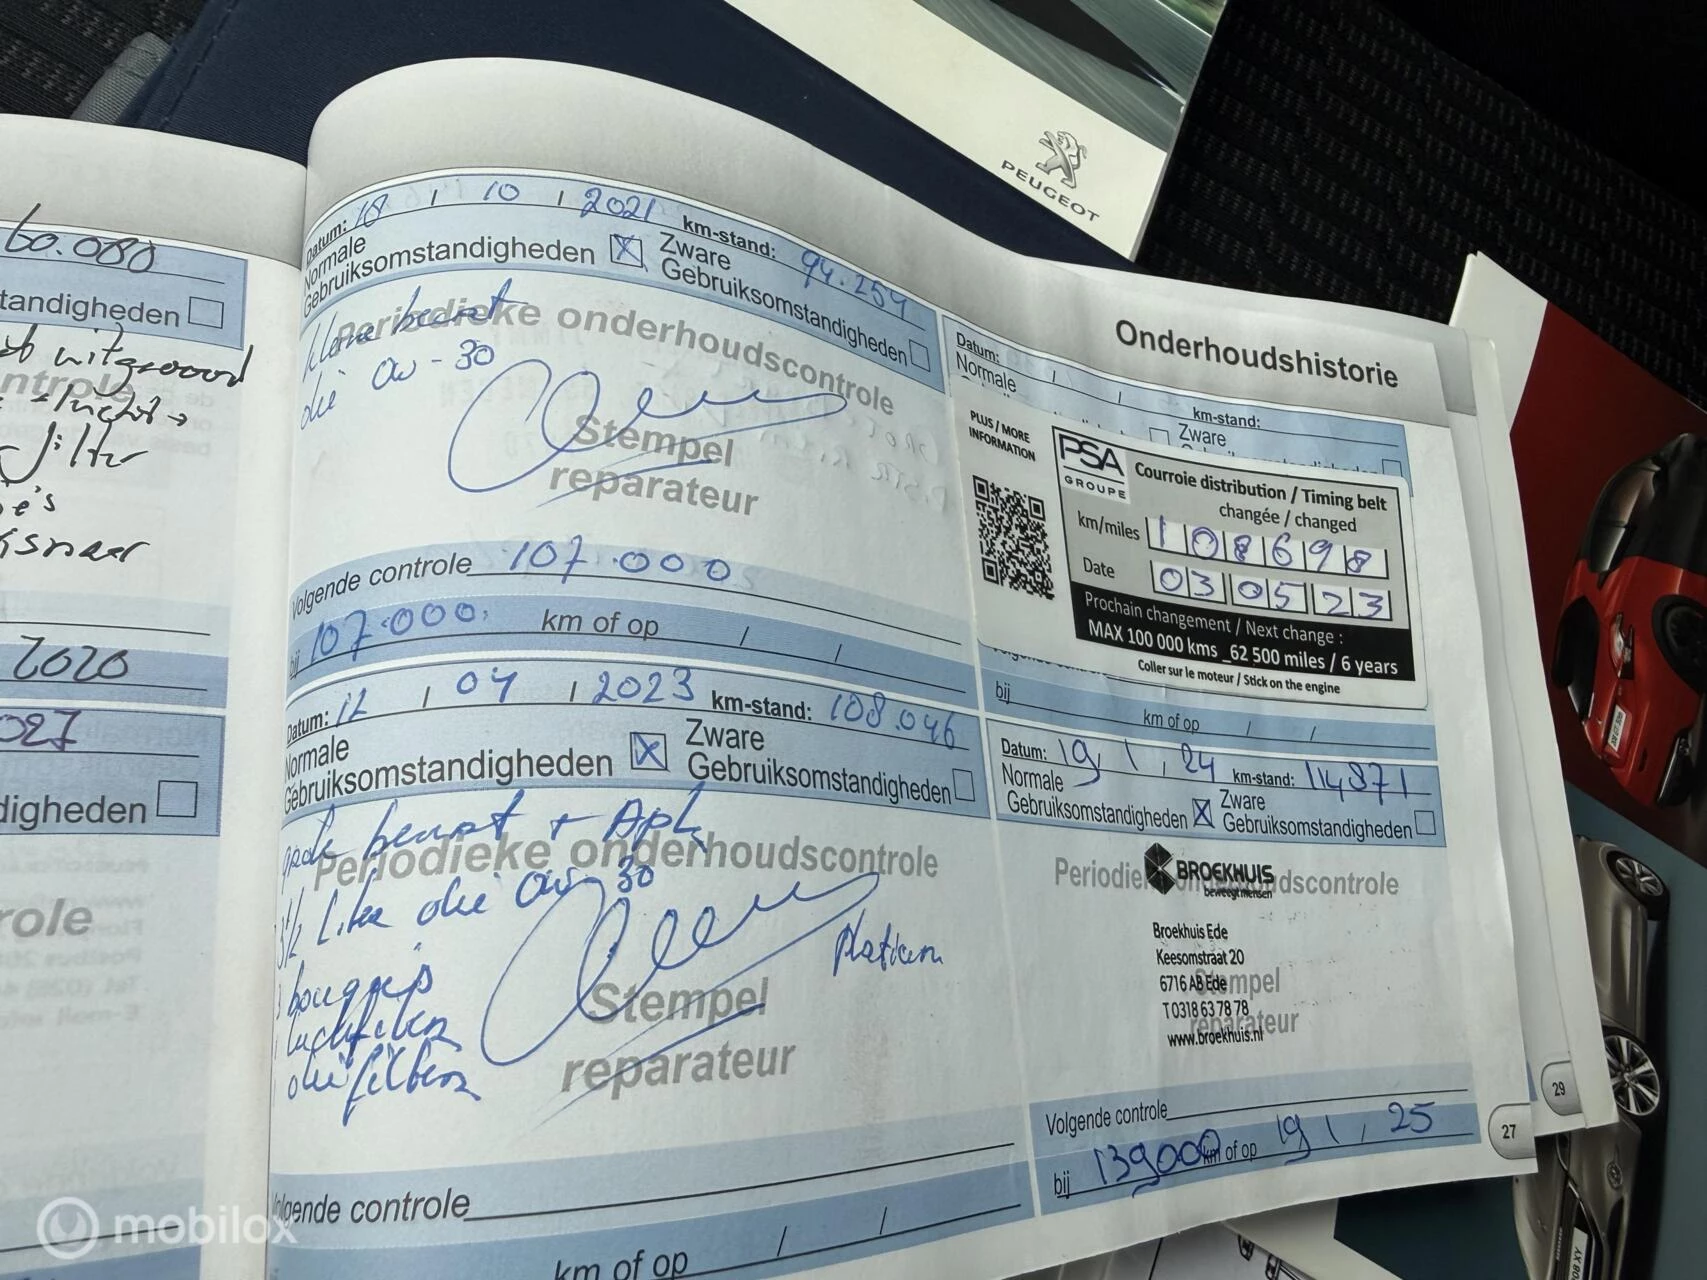 60.080
tandigheden
uitgevoerd
filter
2020
027
digheden
role
PEUGEOT
Onderhoudshistorie
Datum: 18 / 10 / 2021 km-stand: 94.259
Normale Gebruiksomstandigheden X Zware Gebruiksomstandigheden
kleine beurt
Periodieke onderhoudscontrole
olie ow-30
Stempel
reparateur
Volgende controle 107.000
bij 107.000 km of op / /
Datum: 12 / 04 / 2023 km-stand: 108.046
Normale Gebruiksomstandigheden X Zware Gebruiksomstandigheden
grote beurt + Apk
Periodieke onderhoudscontrole
3½ liter olie ow 30
Platium
3 bougies
luchtfilter
oliefilter
Stempel
reparateur
Volgende controle
km of op / /
Datum: / / km-stand:
Normale
Zware
PLUS / MORE
INFORMATION
PSA
GROUPE
Courroie distribution / Timing belt
changée / changed
km/miles 108698
Date 030523
Prochain changement / Next change :
MAX 100 000 kms _62 500 miles / 6 years
Coller sur le moteur / Stick on the engine
bij km of op / /
Datum: 19 / 1 / 24 km-stand: 114871
Normale Gebruiksomstandigheden X Zware Gebruiksomstandigheden
Periodieke onderhoudscontrole
BROEKHUIS
beweegt mensen
Broekhuis Ede
Keesomstraat 20
6716 AB Ede
Stempel
T 0318 63 78 78
reparateur
www.broekhuis.nl
Volgende controle
bij 139000 km of op 19 / 1 / 25
27
29
mobilox